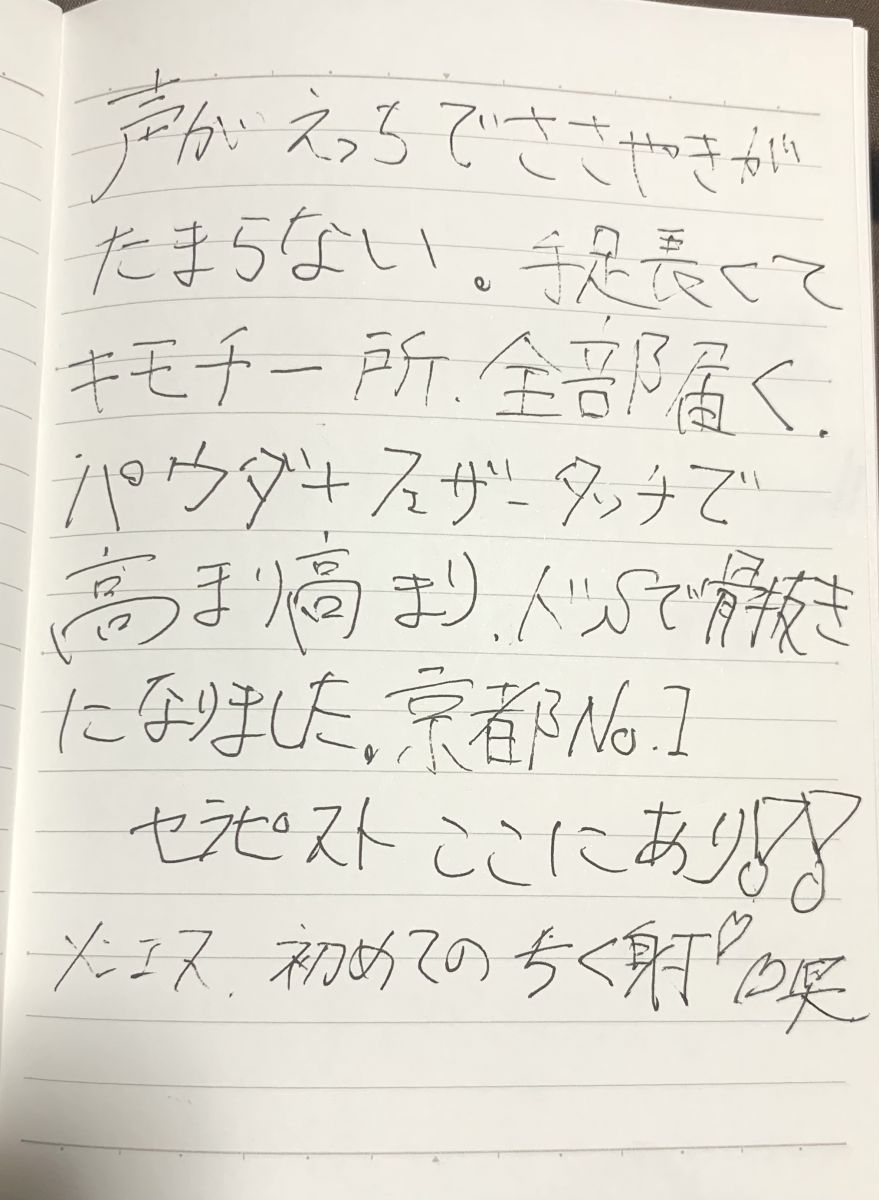 声がえっちでささやきが
たまらない。手足長くて
キモチー所.全部届く.
パウダーフェザータッチで
高まり高まり.ドSで骨抜き
になりました。京都No.1
セラピストここにあり!!
メンエス.初めてのちく射♡